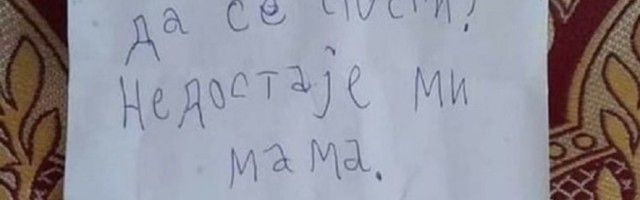 да се
Недостаје ми
мама.